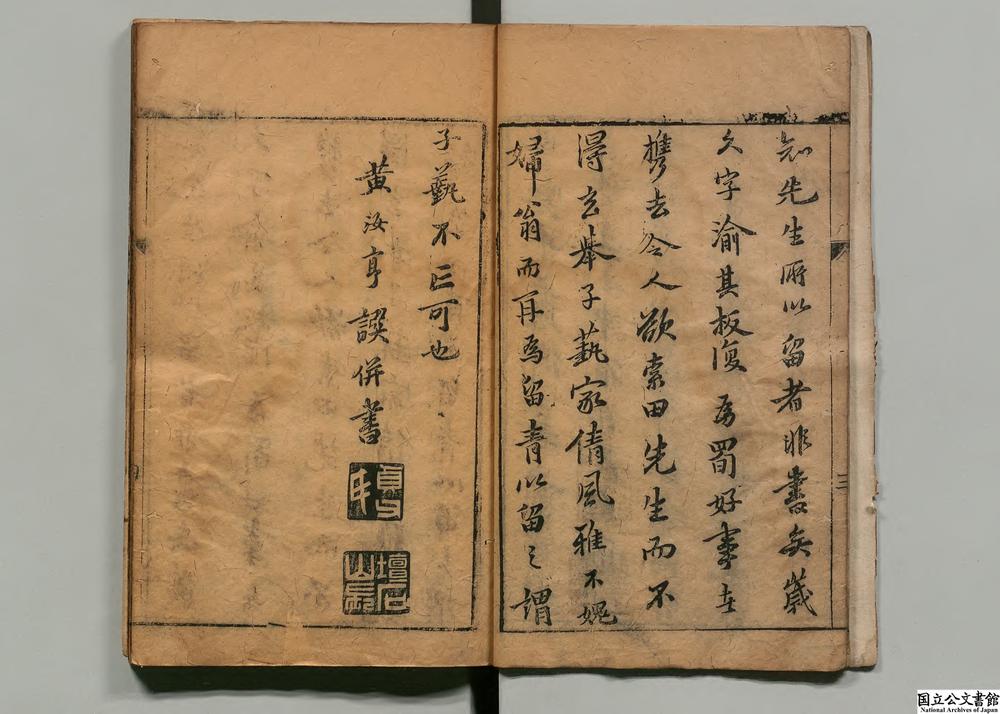 知先生所以留者非書矣歲
久字渝其板復為蜀好事者
攜去令人欲索田先生而不
得玄舉子藝家倩風雅不媿
婦翁而再為留青以留之謂
子藝不亡可也
黃汝亨譔併書
貞父
壇石山長
三
国立公文書館
National Archives of Japan